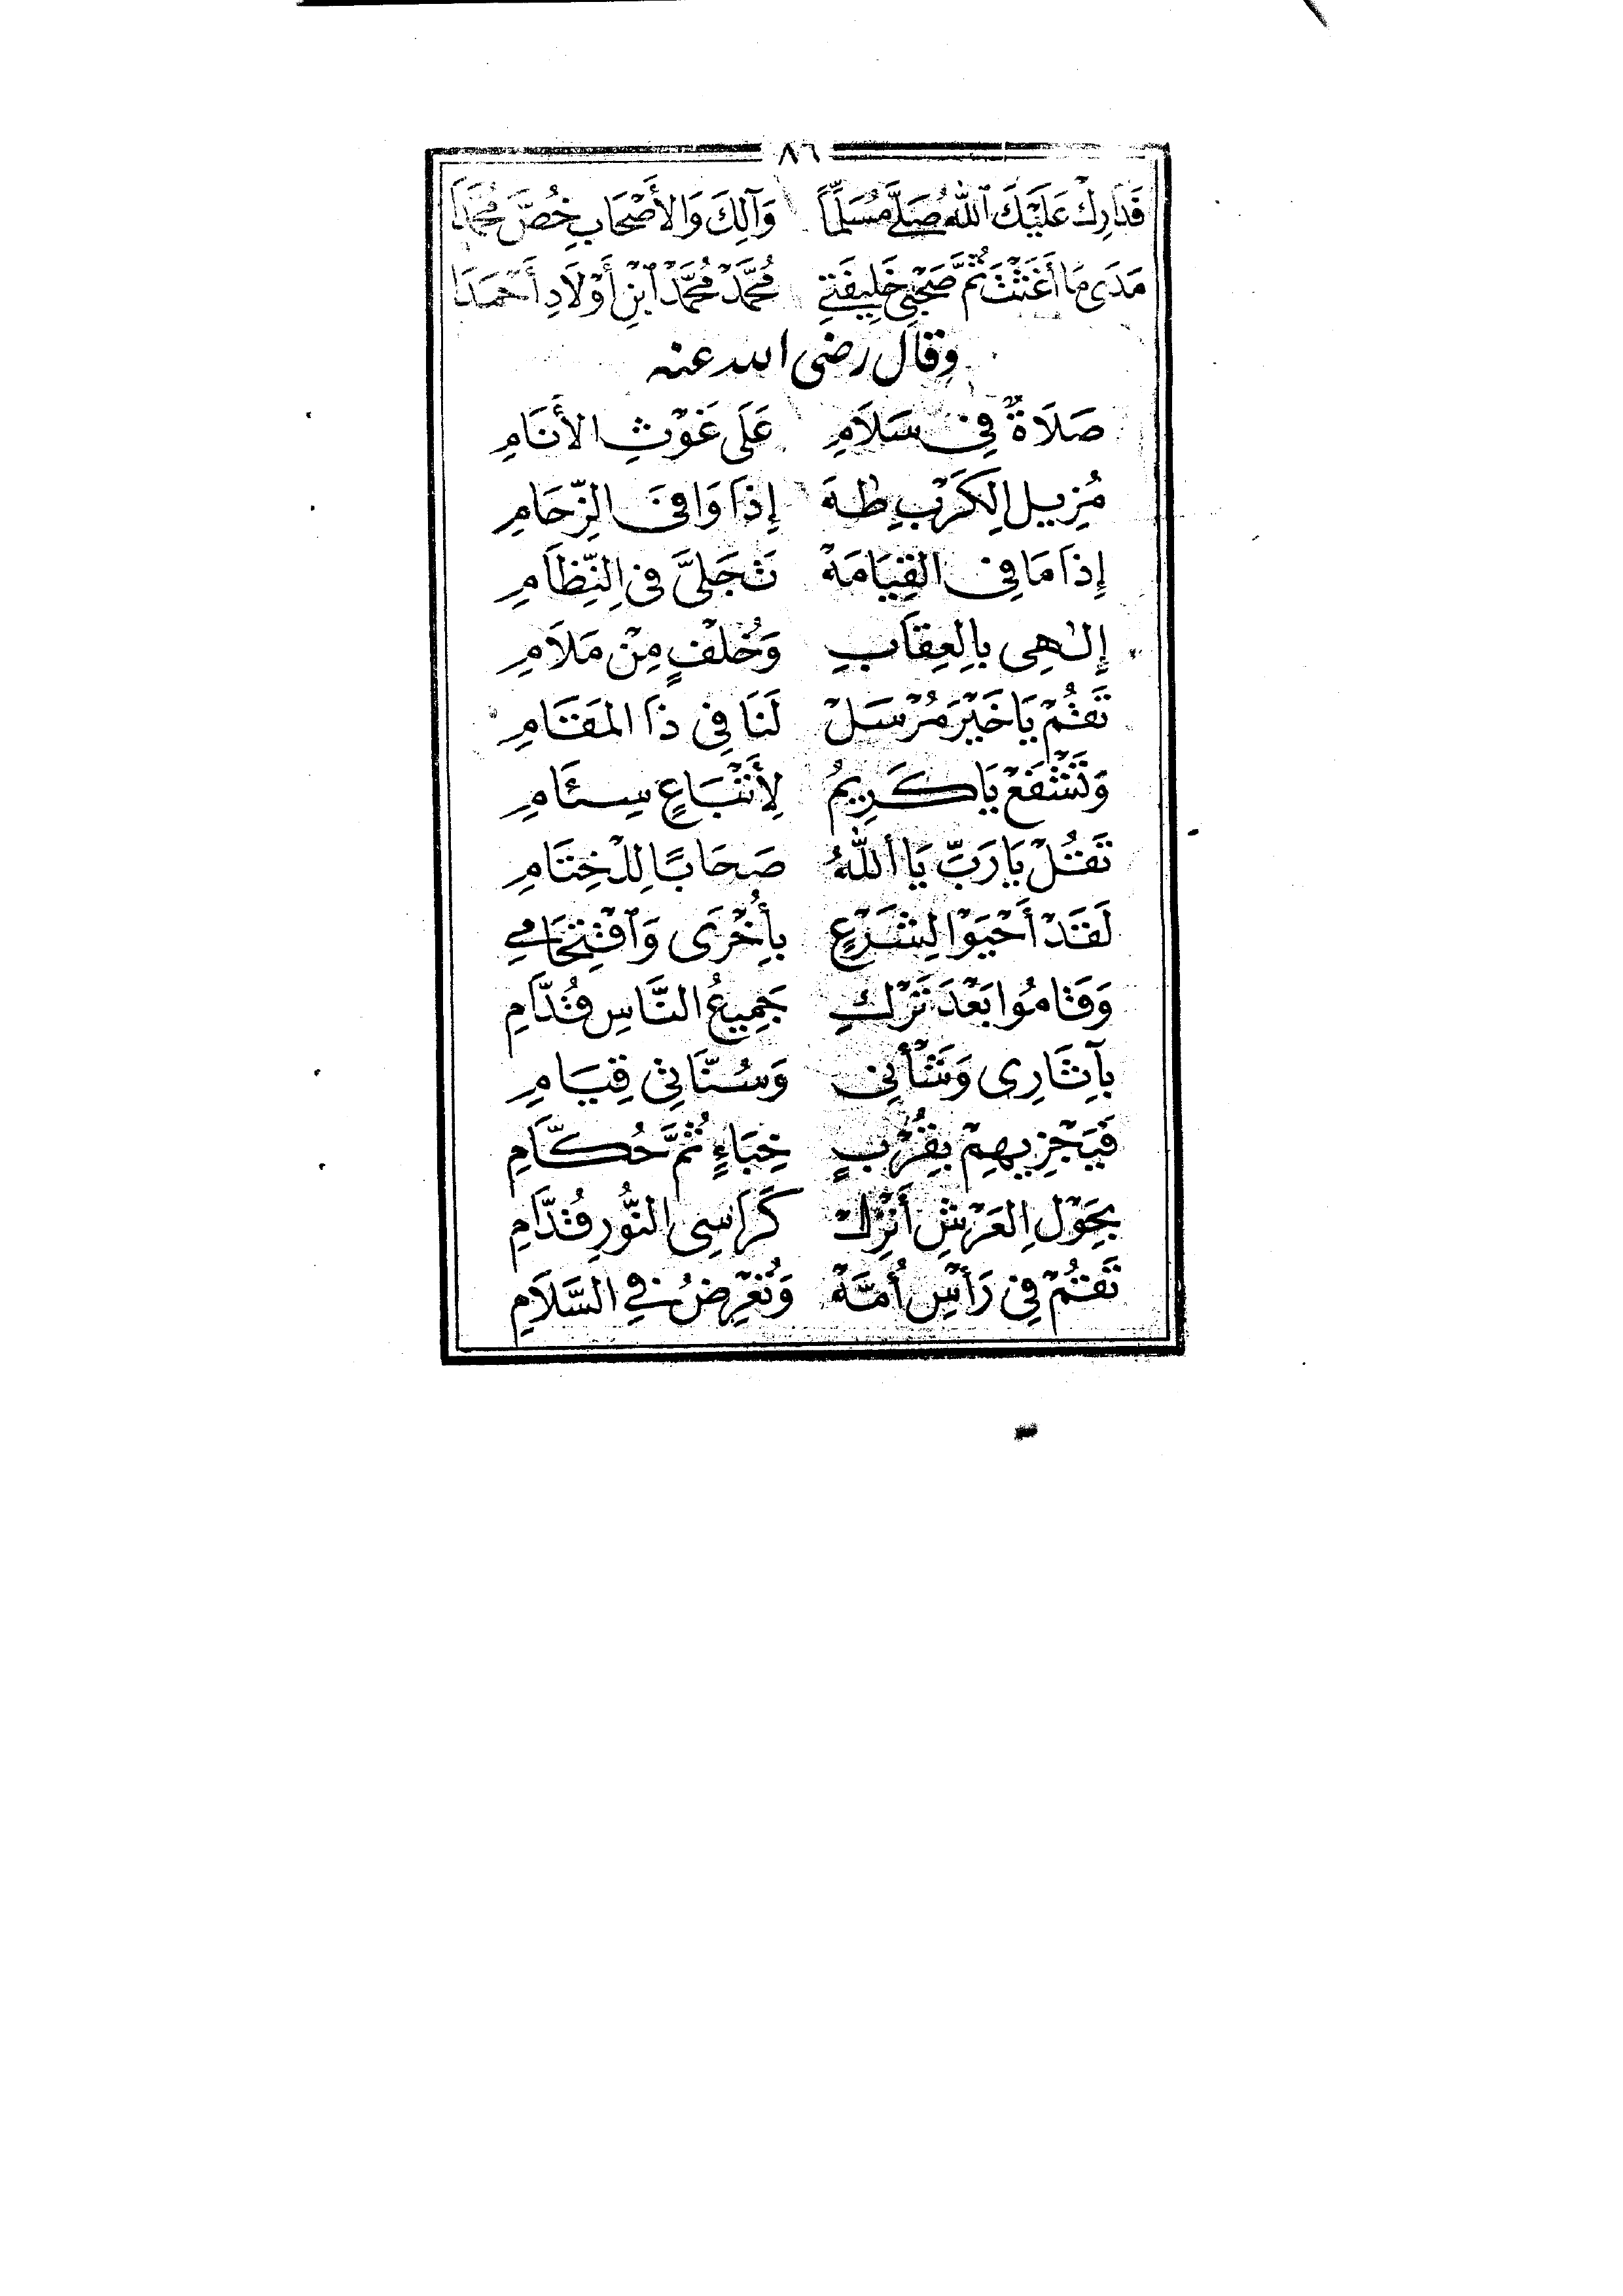 ٨٦
فَدَارِكْ عَلَيْكَ ٱللهُ صَلَّى مُسَلِّمًا وَآلِكَ وَالأَصْحَابِ خُصَّ مُحَمَّدَا
مَدَى مَا أَغَثْتَ ثُمَّ صَحْبِي خَلِيفَتِي مُحَمَّدْ مُحَمَّدْ ٱبْنِ أَوْلَادِ أَحْمَدَا
وقال رضى الله عنه
صَلَاةٌ فِى سَلَامِ عَلَى غَوْثِ الأَنَامِ
مُزِيلِ الكَرْبِ طٰهَ إِذَا وَافَى الزِّحَامِ
إِذَا مَا فِى القِيَامَةْ تَجَلَّى فِى النِّظَامِ
إِلٰهِى بِالعِقَابِ وَخُلْفٍ مِنْ مَلَامِ
تَقُمْ يَا خَيْرَ مُرْسَلْ لَنَا فِى ذَا المَقَامِ
وَتَشْفَعْ يَا كَرِيمُ لِأَتْبَاعٍ سِئَامِ
تَقُلْ يَا رَبِّ يَا أَللهُ صَحَابًا لِلْخِتَامِ
لَقَدْ أَحْيَوْا لِشَرْعِ بِأُخْرَى وَٱفْتِحَامِي
وَقَامُوا بَعْدَ تَرْكِ جَمِيعُ النَّاسِ قُدَّامِ
بِآثَارِى وَشَأْنِى وَسُنَّاتِى قِيَامِ
فَيَجْزِيهِمْ بِقُرْبٍ خِبَاءٍ ثُمَّ حُكَّامِ
بِحَوْلِ العَرْشِ أَتْرِكْ كَرَاسِى النُّورِ قُدَّامِ
تَقُمْ فِى رَأْسِ أُمَّةْ وَتُعْرِضُ فِي السَّلَامِ